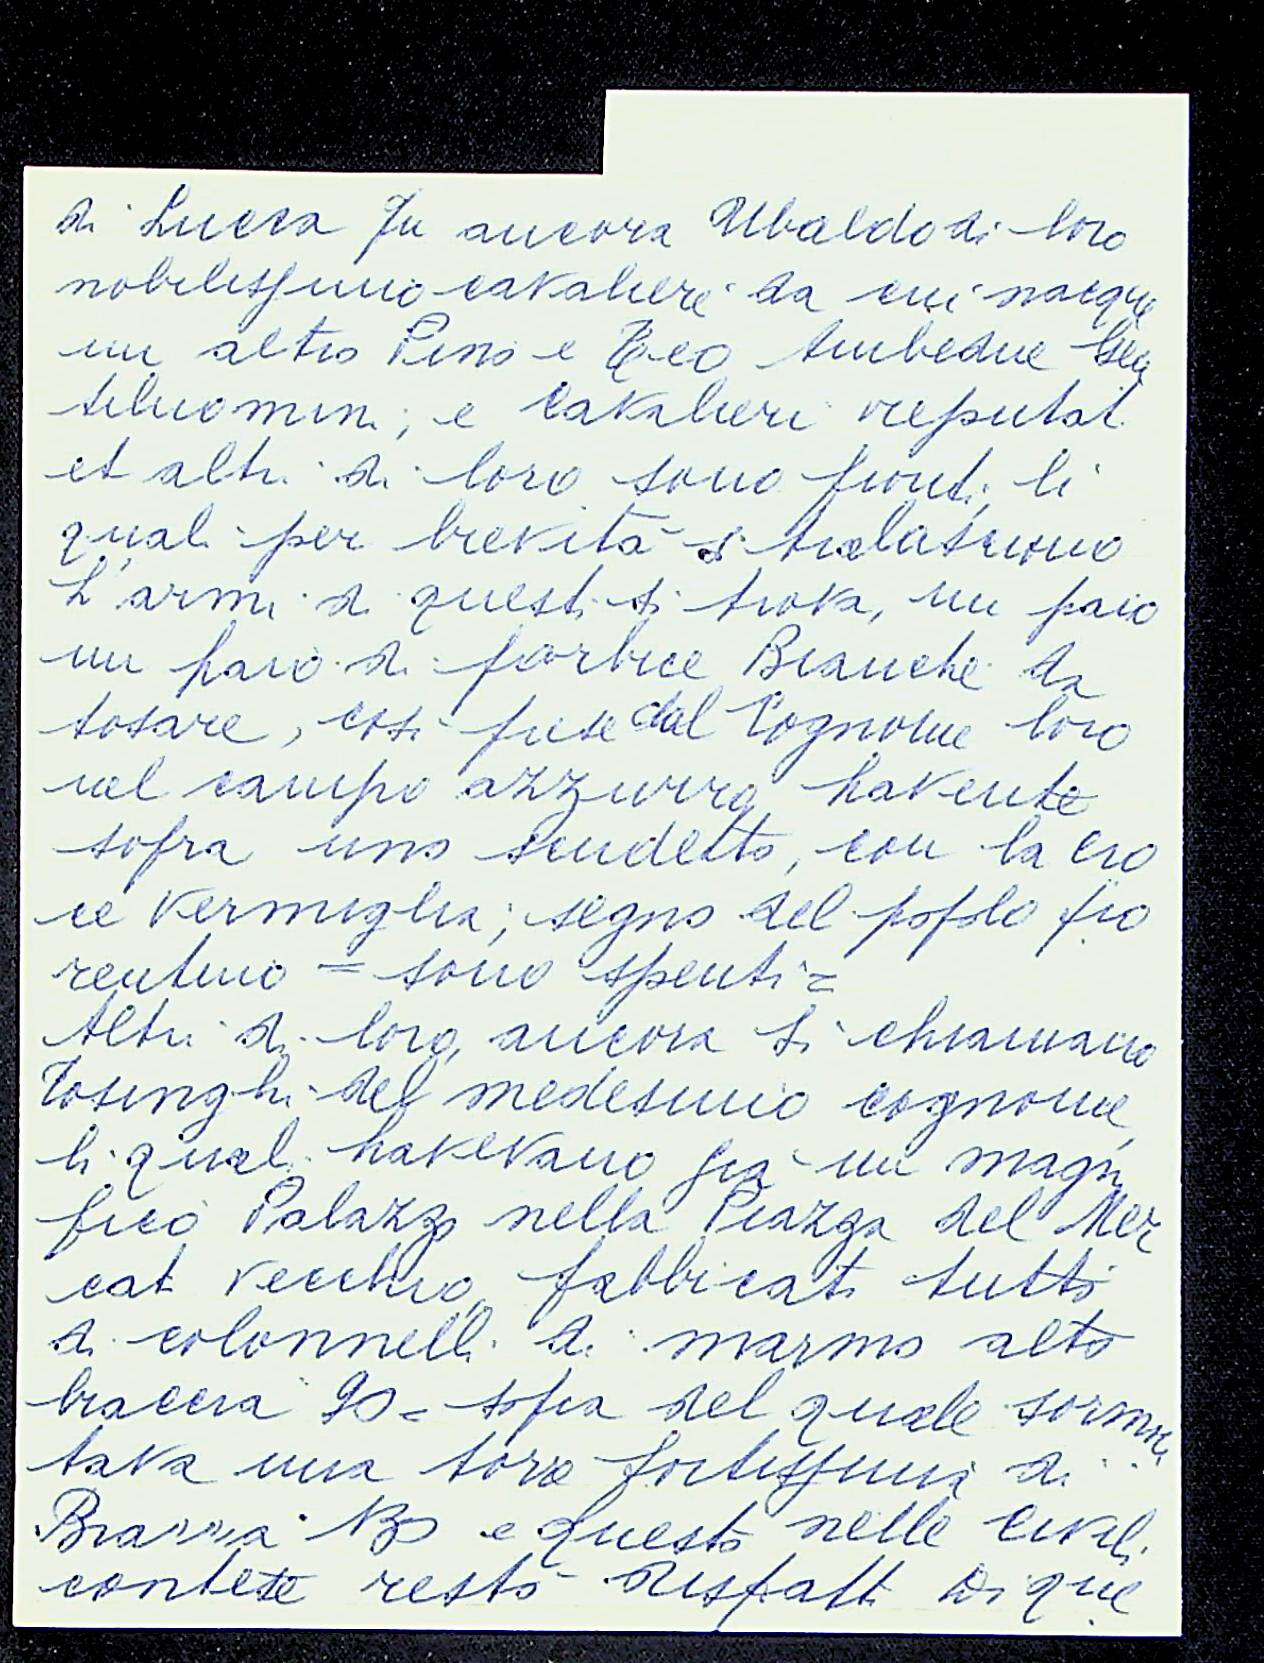 di Lucca Fu ancora Ubaldo di loro
nobilissimo cavaliere da cui nacque
un altro Pino e Teo Ambedue Gen
tiluomini; e Cavalieri reputati
et altri di loro sono fioriti; li
quali per brevità si tralasciono
L'armi di questi si trova, un paio
un paio di forbice Bianche da
tosare, così fuse dal Cognome loro
nel campo azzurro havente
sopra uno scudetto, con la cro
ce vermiglia; segno del popolo fio
rentino = sono spenti =
Altri di loro, ancora si chiamano
Tosinghi del medesimo cognome,
li quali havevano già un magni
fico Palazzo nella Piazza del Mer
cat vecchio, fabbricati tutti
di colonnelli di marmo alto
braccia 90 = sopra del quale sormon
tava una torre fortissima di
Braccia e questo nelle Civili
contese restò disfatti Di que